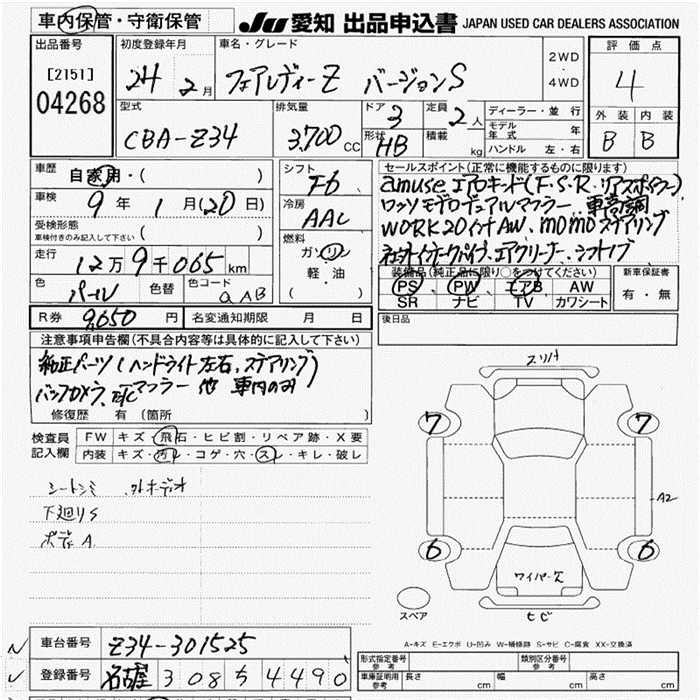 車内保管・守衛保管
JU 愛知 出品申込書 JAPAN USED CAR DEALERS ASSOCIATION
出品番号
[2151]
04268
初度登録年月
24 2月
車名・グレード
フェアレディーZ バージョンS
2WD
・
4WD
評価点
4
外装 内装
B B
型式
CBA-Z34
排気量
3,700CC
ドア
3
形状
HB
定員
2人
積載
kg
ディーラー・並行
モデル年式 年
ハンドル 左・右
車歴
自家用・( )
車検
9年 1月(20日)
受検形態
車検付きのみ記入して下さい( )
走行
12万9千065km
色
パール
色替
色コード
QAB
シフト
F6
冷房
AAC
燃料
ガソリン
軽・油
( )
セールスポイント(正常に機能するものに限ります)
amuse エアロキッド(F.S.R.リアスポイラー)
ワンオフ デュアルマフラー 車高調
WORK20インチAW、momoステアリング
エアクリーナー、シフトノブ
装備品(純正品に限り○をつけてください)
PS PW エアB AW
SR ナビ TV カワシート
新車保証書
有・無
R券 9,650円
名変通知期限 月 日
後日品
注意事項申告欄(不具合内容等は具体的に記入して下さい)
純正パーツ(ヘッドライト左右、ステアリング)
バックカメラ、マフラー他 車内のみ
修復歴 有(箇所 )
検査員
記入欄
FW キズ・飛石・ヒビ割・リペア跡・X要
内装 キズ・汚レ・コゲ・穴・スレ・キレ・破レ
シートシミ 外オーディオ
下廻りS
ボディA
スリハ
7 7
A2
6 6
ワイパー欠
スペア
ヒビ
A-キズ E-エクボ U-凹み W-補修跡 S-サビ C-腐食 XX-交換済
車台番号 Z34-301525
登録番号 名古屋 308 ち 4490
形式指定番号
参考
類別区分番号
参考
車庫証明用
参考
長さ cm 幅 cm 高さ cm